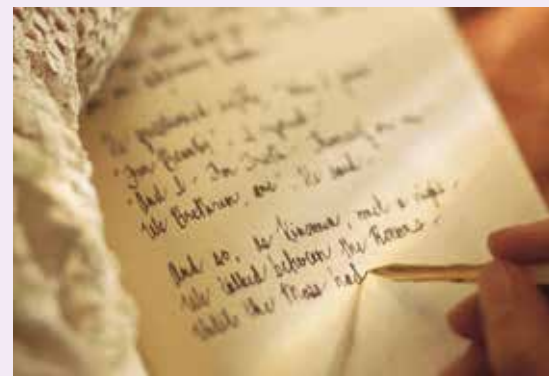 He questioned softly, "
"For Beauty", I replied -
"And I - For Truth -
We Brethren, are" He said -
And so, as Kinsmen, met a Night -
We talked between the Rooms -
Until the Moss had